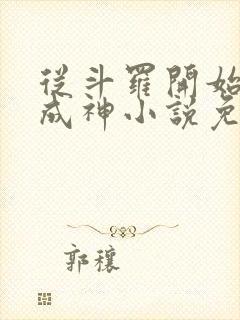 從斗羅開始
成神小說免
郭穰